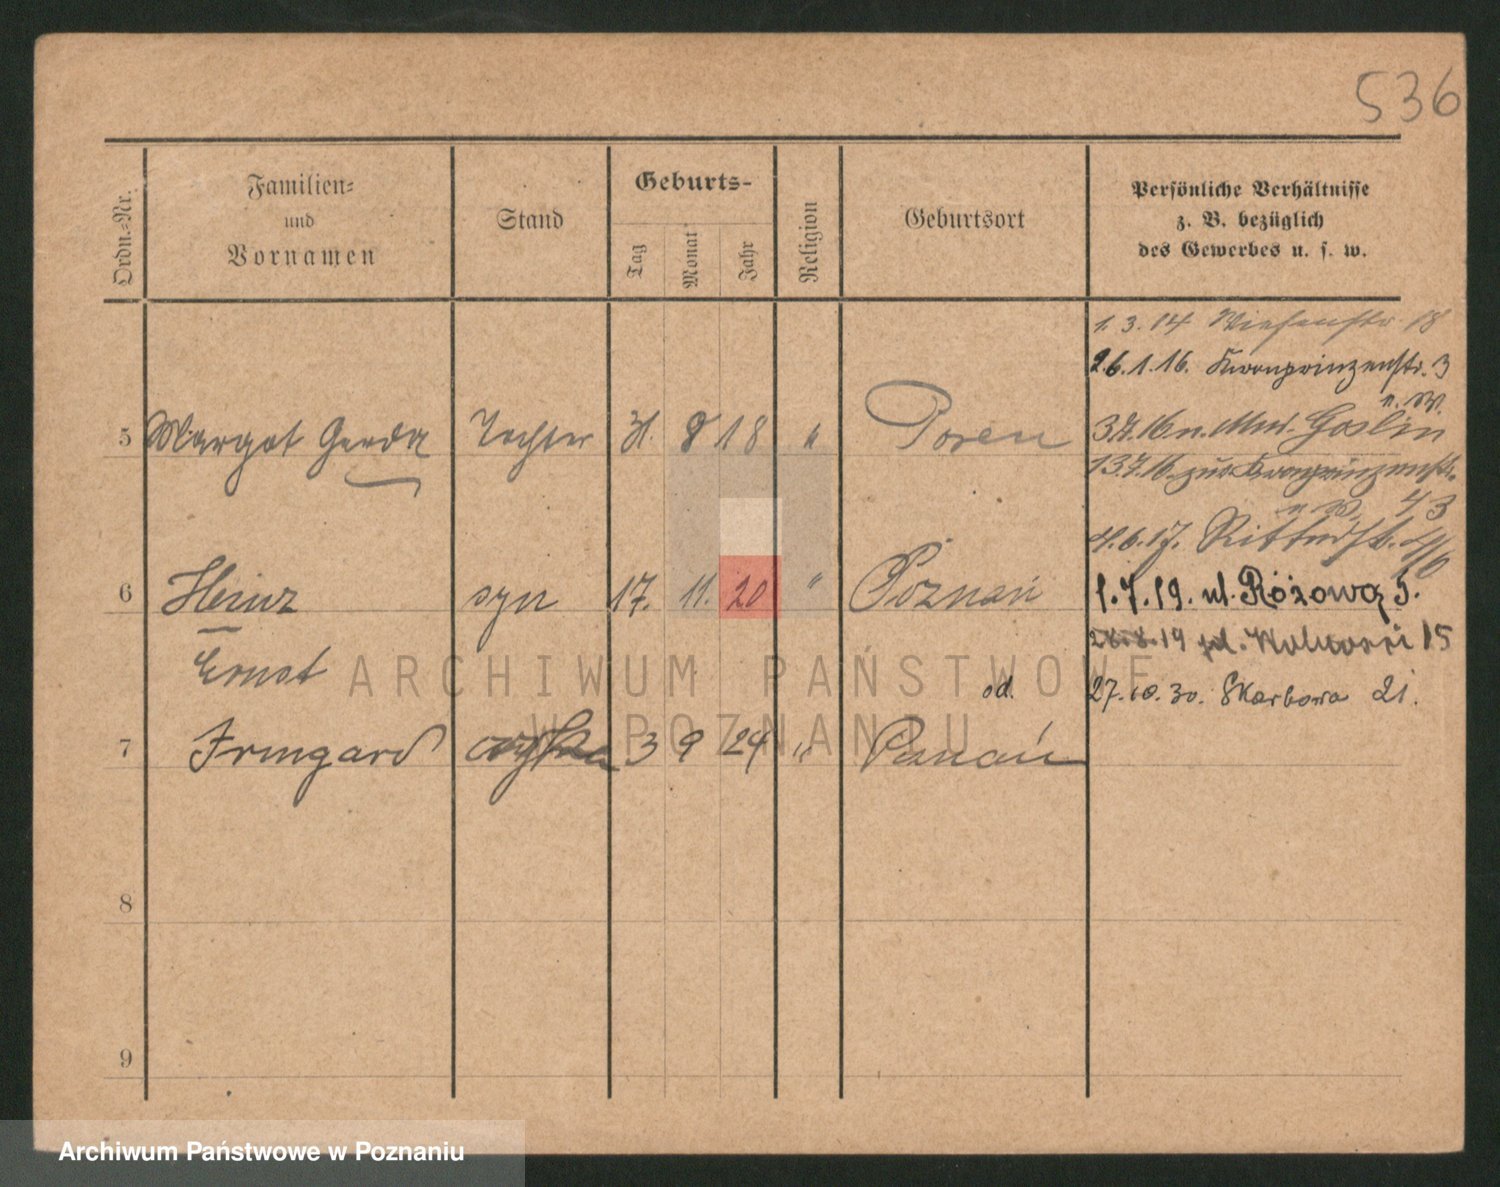 536
Ordn.-Nr.
Familien-
und
Vornamen
Stand
Geburts-
Tag
Monat
Jahr
Religion
Geburtsort
Persönliche Verhältnisse
z. B. bezüglich
des Gewerbes u. s. w.
1. 3. 14 Wiesenstr. 18
26.1.16. Kronprinzenstr. 3
n. W.
5 Margot Gerda Tochter 8 18 " Posen
Goslin
13.7.16. zur Kronprinzenstr.
n. W. 43
4.6.17. Ritterstr. 4/6
6 Heinz syn 17. 11. 20 " Poznań
1.7.19. ul. Różowa 5.
Ernst
19 15
od. 27.10.30. Skarbowa 21.
7 Irmgard córka 3 9 24 " Poznań
8
9
ARCHIWUM PAŃSTWOWE
W POZNANIU
Archiwum Państwowe w Poznaniu